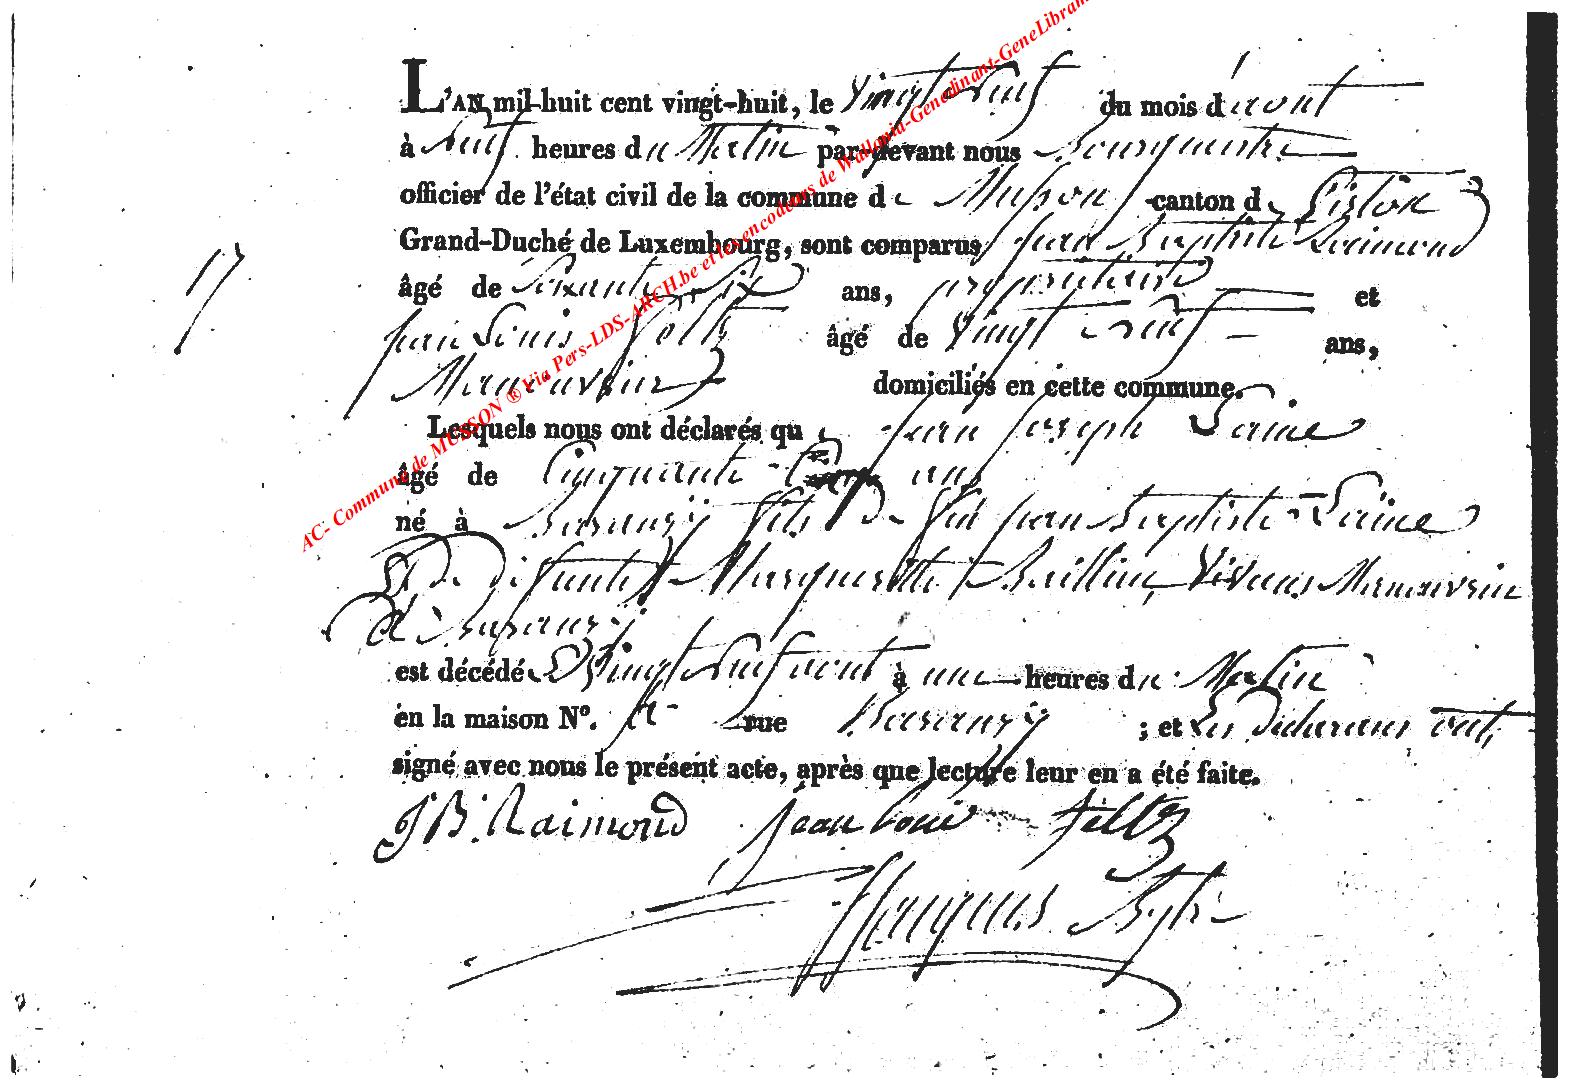 L'AN mil-huit cent vingt-huit, le Vingt neuf du mois d'aout
à neuf heures du Matin par-devant nous Bourguestre
officier de l'état civil de la commune de Musson canton de
Grand-Duché de Luxembourg, sont comparus jean Baptiste Raimond
17
âgé de Soixante Six ans, propriétaire et
jean Louis âgé de Vingt neuf ans,
Manouvrier domiciliés en cette commune.
Lesquels nous ont déclarés que jean joseph
âgé de Cinquante ans
né à Baranzÿ fils de feu jean Baptiste
& De défunte Margueritte Vivans Manouvrier
à Baranzÿ
est décédé Vingt neuf aout à une heures du Matin
en la maison N°. rue Baranzÿ ; et Les Déclarans ont,
signé avec nous le présent acte, après que lecture leur en a été faite.
JB. Raimond jean Louis feltz
AC- Commune de MUSSON ® Via Pers-LDS-ARCH.be et les encodeurs de Wallonia-Genedinant-GeneLibran